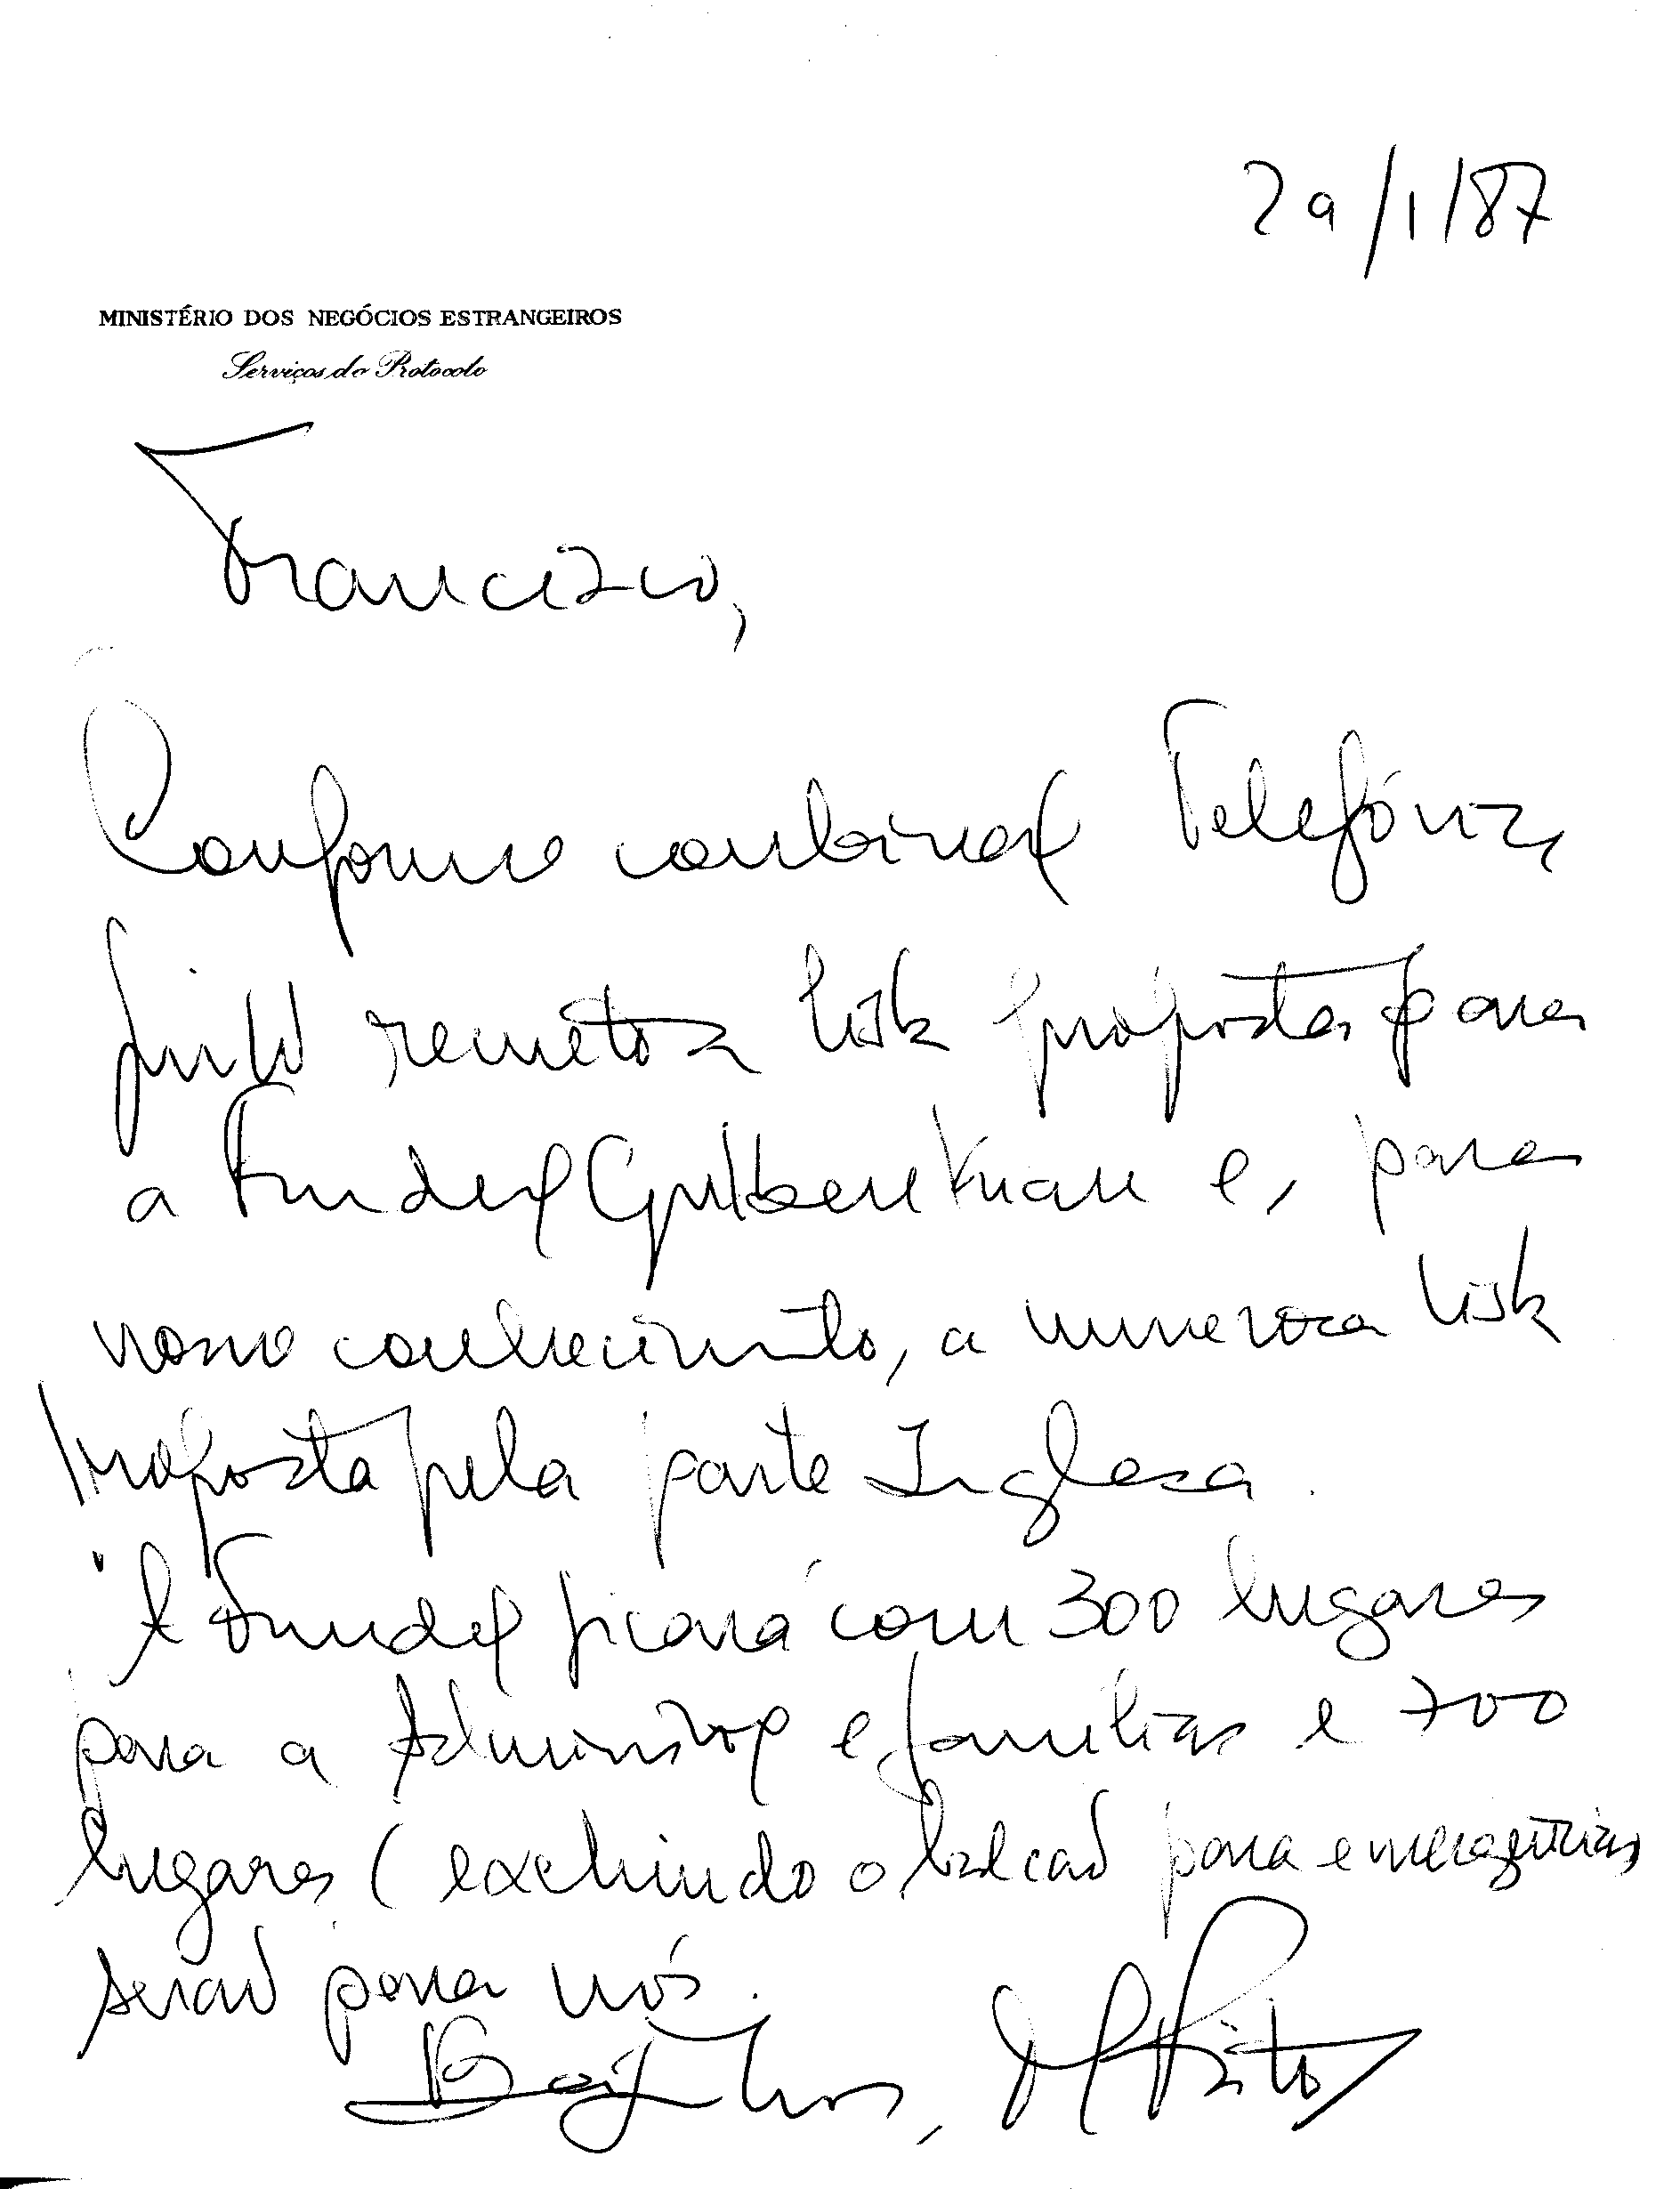 29/1/87
MINISTÉRIO DOS NEGÓCIOS ESTRANGEIROS
Serviços do Protocolo
Francisco,
Conforme combinaç Telefónica
junto remeto a lista proposta para
a Fundaç Gulbenkian e, para
vosso conhecimento, a numerosa lista
proposta pela parte Inglesa.
A Fundaç ficará com 300 lugares
para a Administraç e famílias e 700
lugares (excluindo o balcão para emergências
serão para nós.